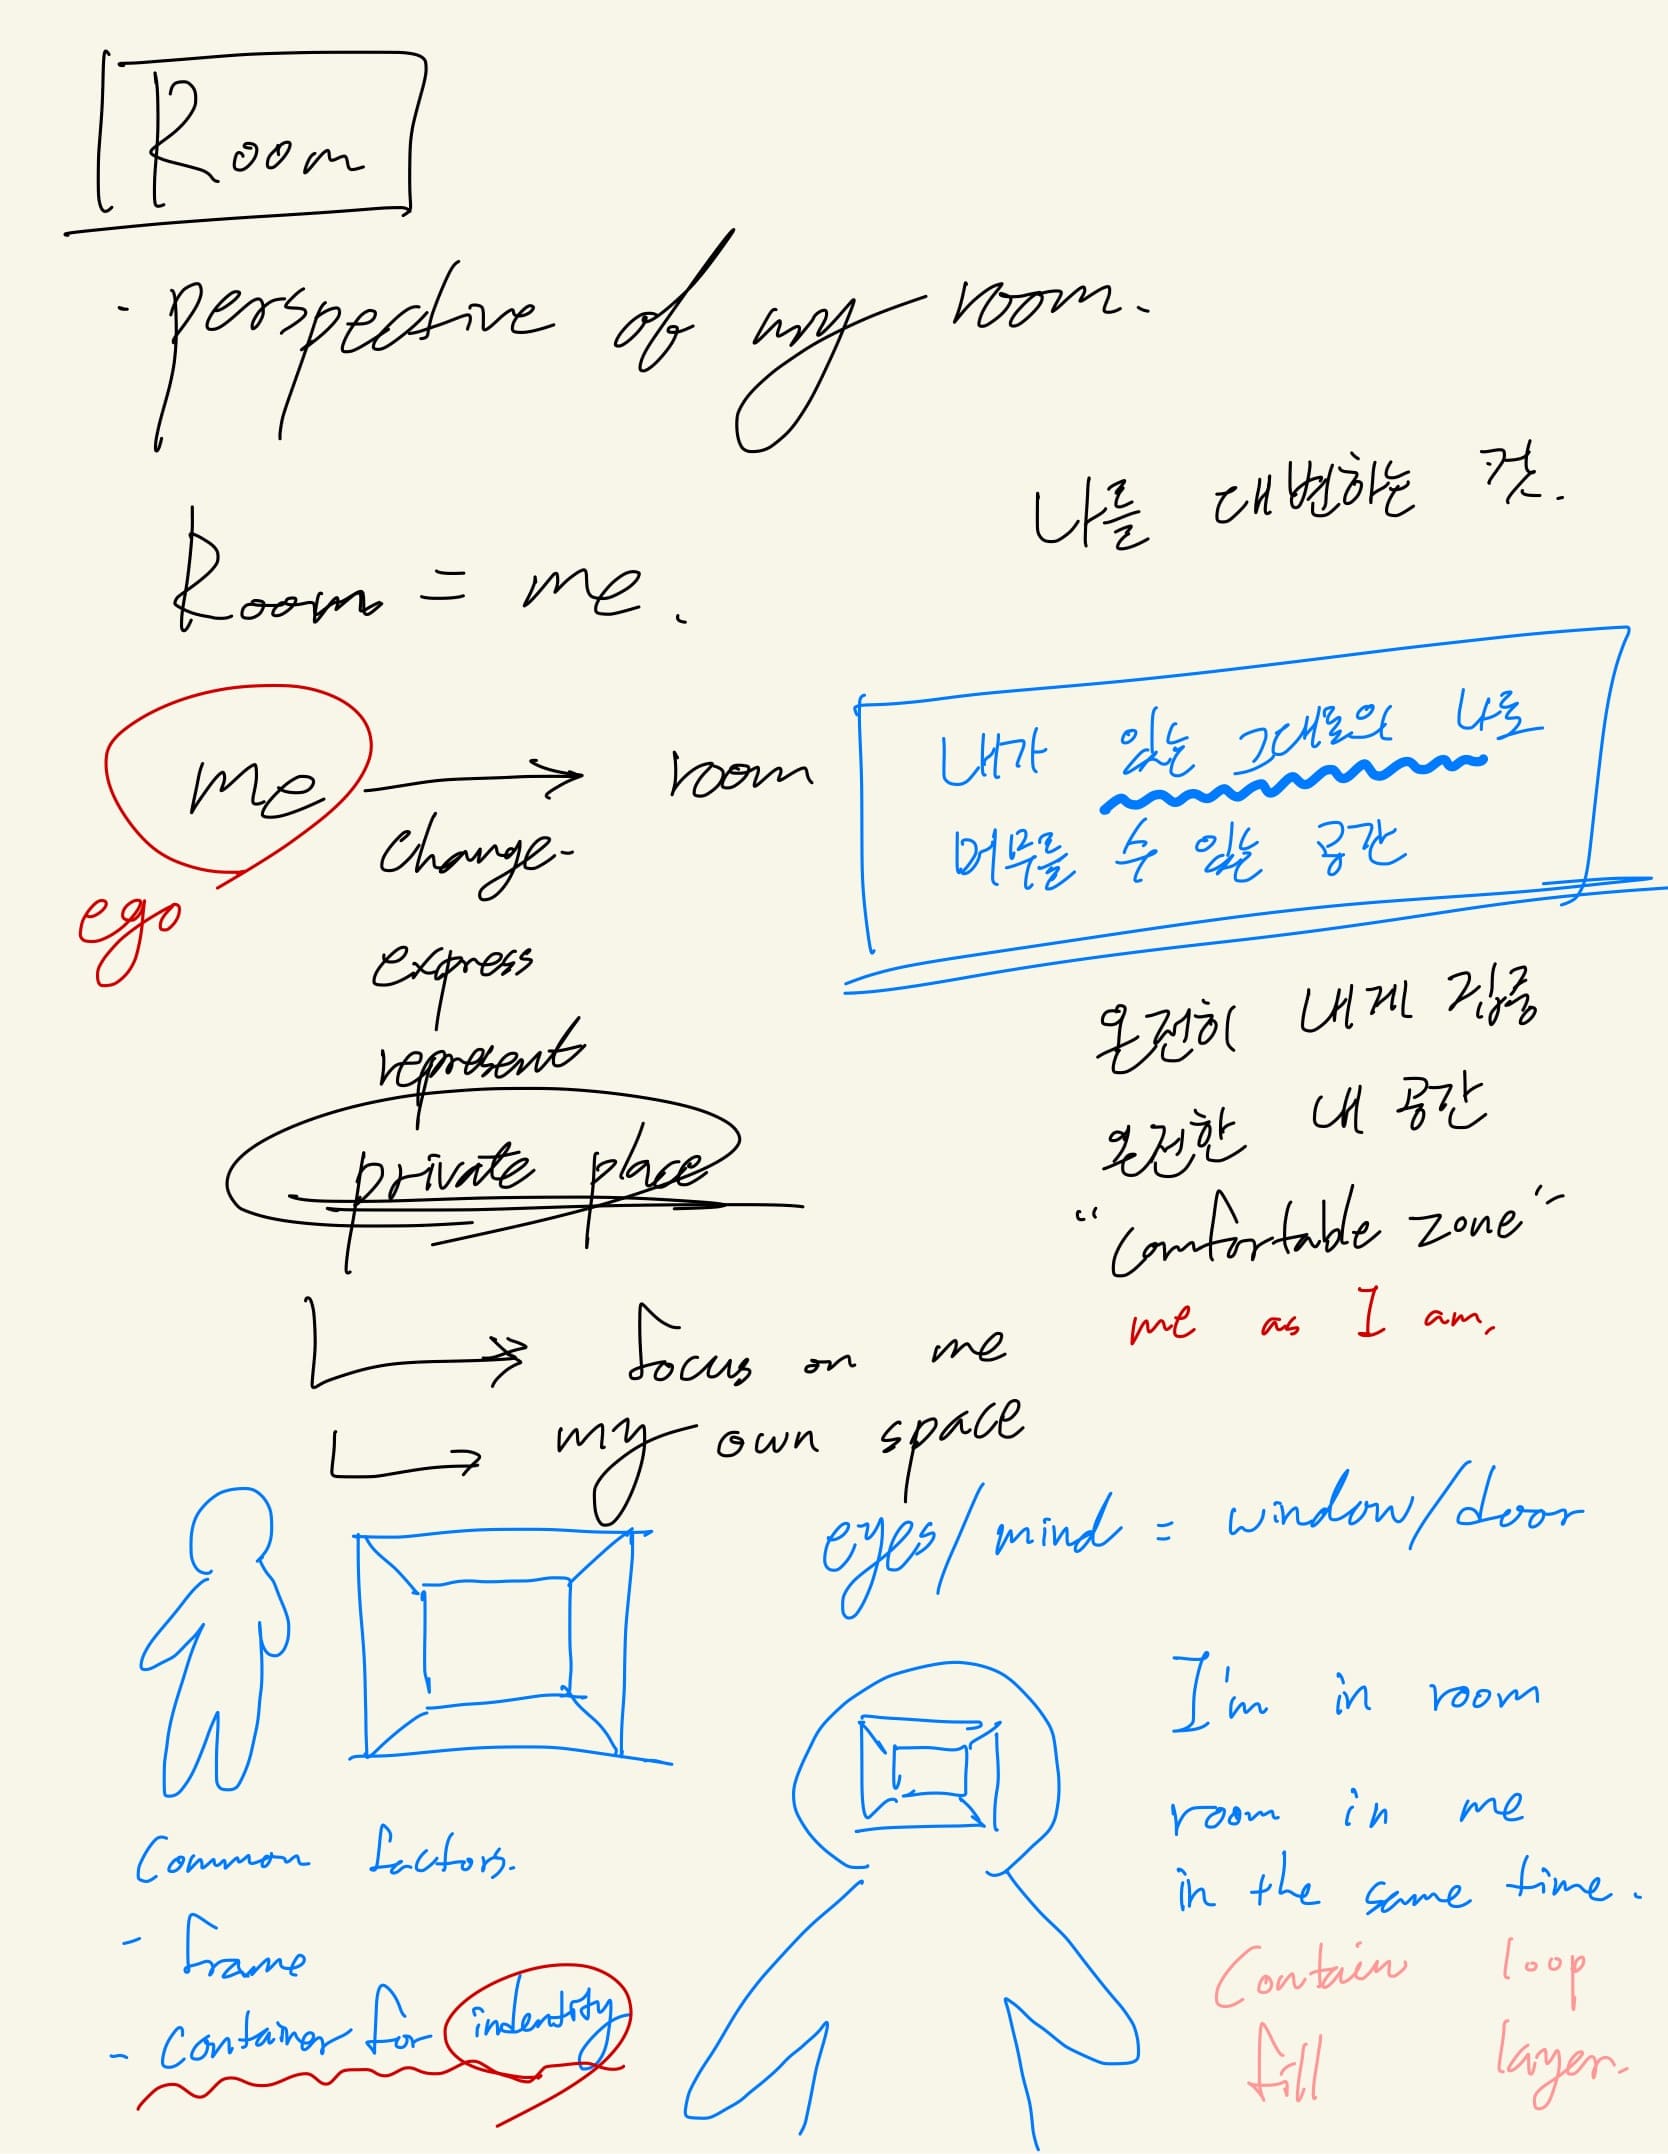 Room
- perspective of my room.
나를 대변하는 것.
Room = me.
me → room
ego
change
express
represent
private place
내가 있는 그대로의 나로
머무를 수 있는 공간
온전히 내게 집중
온전한 내 공간
"comfortable zone"
me as I am.
→ focus on me
→ my own space
eyes/mind = window/door
I'm in room
room in me
in the same time.
Common factors.
- frame
- container for indentity
Contain loop
fill layer.